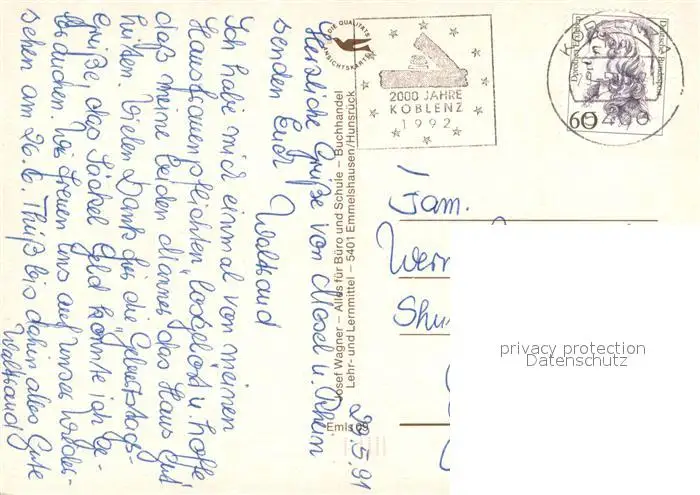 Herzliche Grüße von Mosel u. Rhein
senden Euch Waltraud
Ich habe mich einmal von meinen
Hausfrauenpflichten "losgelöst" u. hoffe
daß meine beiden Männer das Haus gut
hüten. Vielen Dank für die Geburtstags-
grüße, das Säckel Geld konnte ich ge-
brauchen. Wir freuen uns auf unser Wieder-
sehen am 26.6. Tschüß bis dahin alles Gute
Waltraud
20.5.91
DIE QUALITÄTS
ANSICHTSKARTE
Josef Wagner – Alles für Büro und Schule – Buchhandel
Lehr- und Lernmittel – 5401 Emmelshausen/Hunsrück
Emls 69
2000 JAHRE
KOBLENZ
1992
Deutsche Bundespost
60
5400
Fam.
Wern
privacy protection
Datenschutz